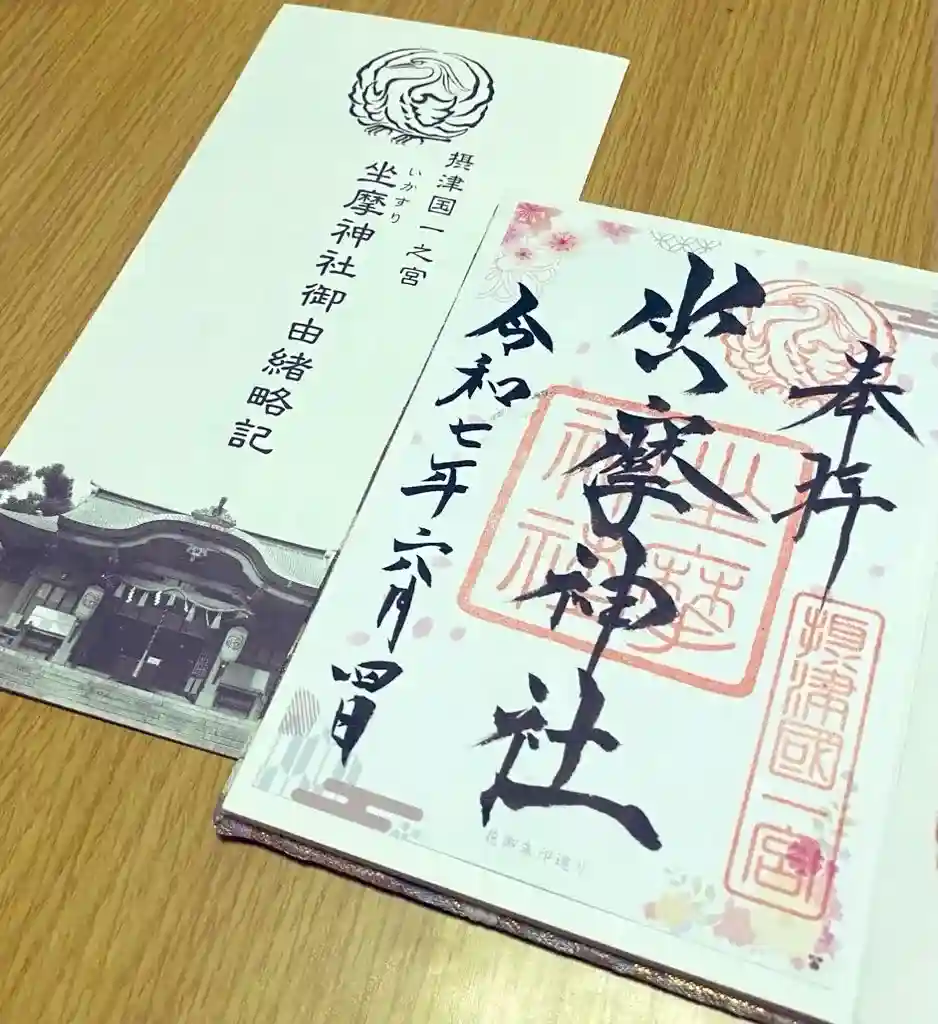 摂津国一之宮
いかすり
坐摩神社御由緒略記
奉拝
摂津國一宮
坐摩神社
坐摩
神社
令和七年六月四日
花御朱印巡り